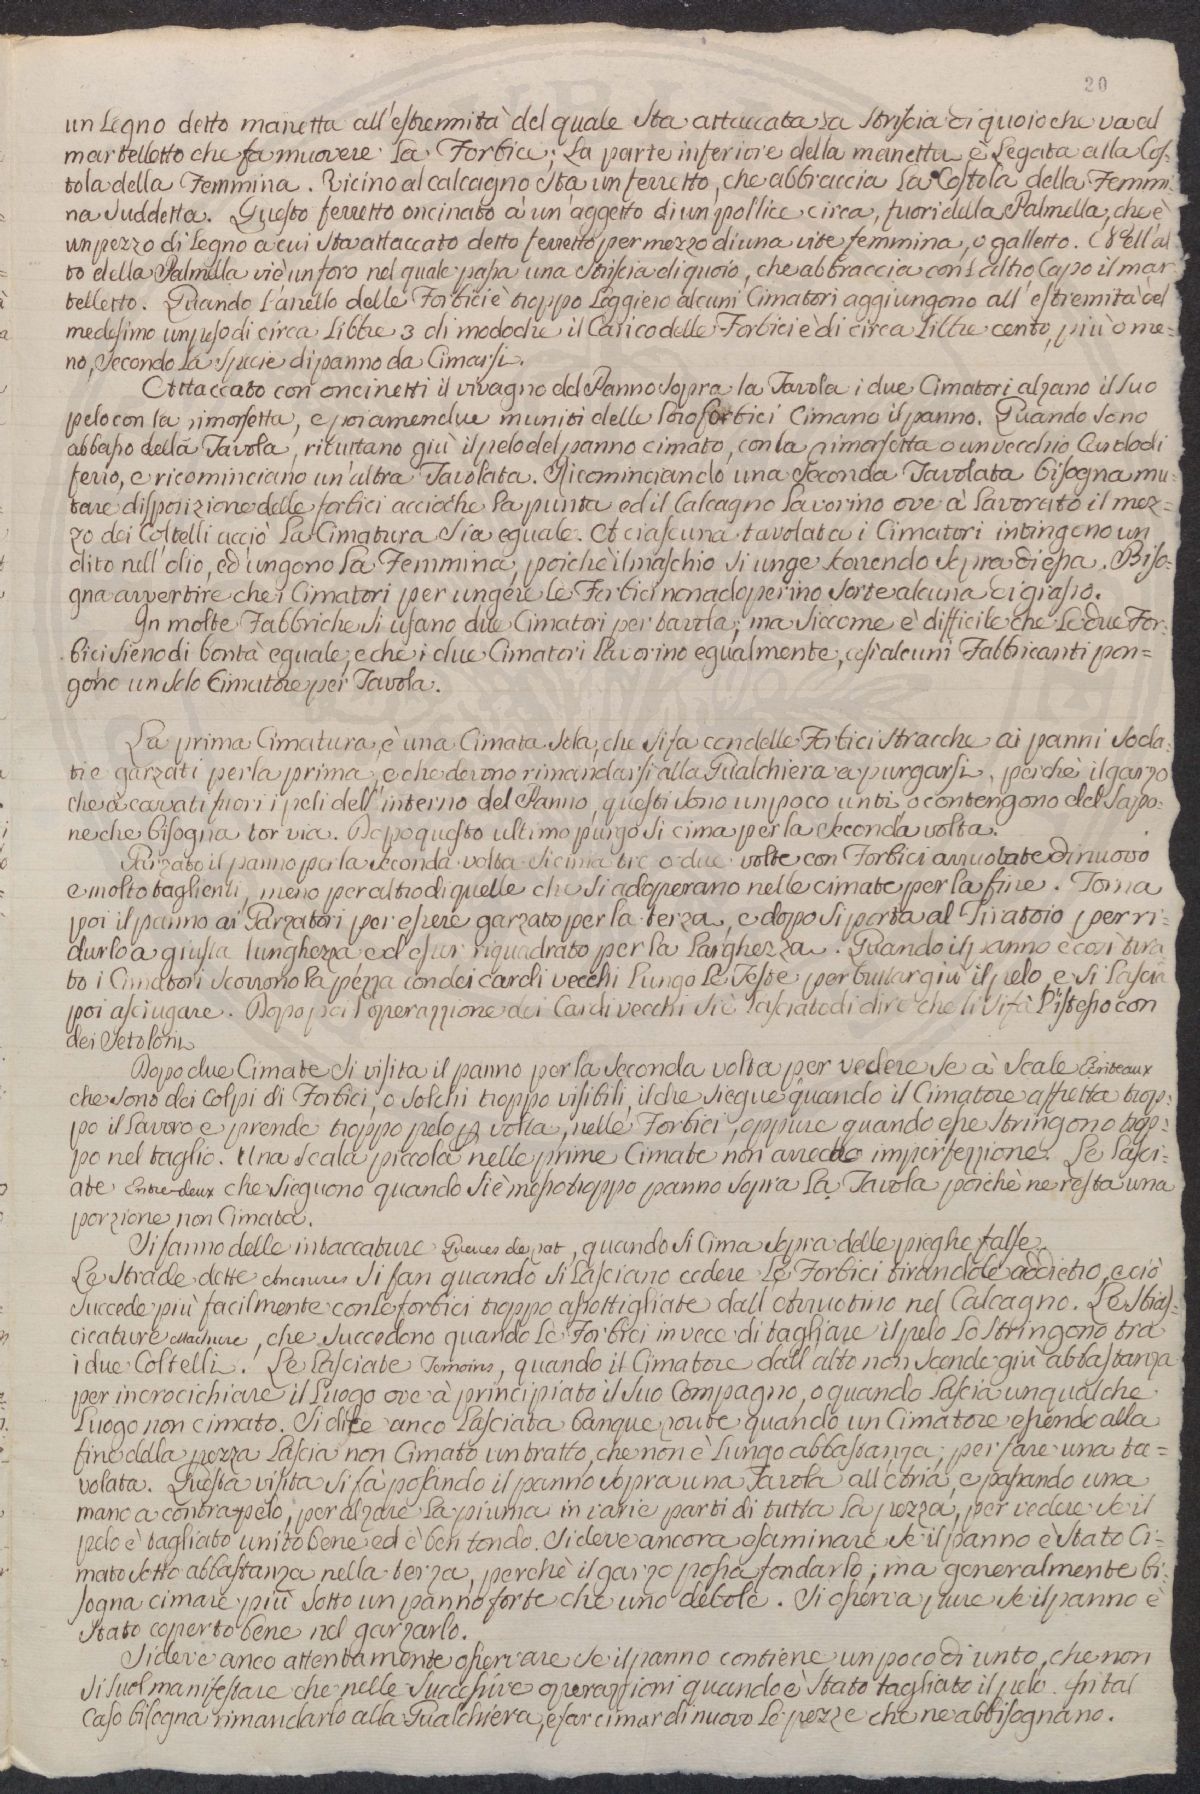 20
un Legno detto manetta all'estremità del quale sta attaccata la striscia di quoio che va al
martelletto che fa muovere la Forbice; La parte inferiore della manetta è Legata alla Cos-
tola della Femmina. Vicino al calcagno sta un ferretto, che abbraccia La Costola della Femmi-
na suddetta. Questo ferretto oncinato à un'aggetto di un pollice circa, fuori della Palmella, che è
un pezzo di Legno a cui sta attaccato detto ferretto per mezzo di una vite femmina, o galletto. Nell'al
to della Palmella vi è un foro nel quale passa una striscia di quoio, che abbraccia con l'altro Capo il mar-
telletto. Quando l'anello delle Forbici è troppo Leggiero alcuni Cimatori aggiungono all'estremità del
medesimo un peso di circa Libbre 3 di modo che il Carico delle Forbici è di circa Libbre cento, più o me-
no, secondo la specie di panno da Cimarsi.
Attaccato con oncinetti il vivagno del Panno sopra la Tavola i due Cimatori alzano il suo
pelo con la rimorsetta, e poi amendue muniti delle loro forbici Cimano il panno. Quando sono
abbasso della Tavola, rituttano giù il pelo del panno cimato, con la rimorsetta o un vecchio Cardo di
ferro, e ricominciano un'altra Tavolata. Ricominciando una seconda Tavolata bisogna mu-
tare disposizione delle forbici acciochè la punta ed il Calcagno Lavorino ove à lavorato il mez-
zo dei Coltelli acciò La Cimatura sia eguale. A ciascuna tavolata i Cimatori intingono un
dito nell'olio, ed ungono la Femmina, poichè il maschio si unge scorrendo sopra di essa. Biso-
gna avvertire che i Cimatori per ungere le Forbici non adoperino sorte alcuna di grasso.
In molte Fabbriche si usano due Cimatori per tavola; ma siccome è difficile che Le due For-
bici sieno di bontà eguale, e che i due Cimatori Lavorino egualmente, così alcuni Fabbricanti pon=
gono un solo Cimatore per Tavola.
La prima Cimatura, è una Cimata sola, che si fa con delle Forbici stracche ai panni soda-
ti e garzati per la prima, e che devono rimandarsi alla Gualchiera a purgarsi, perchè il garzo
che à cavati fuori i peli dell'interno del Panno, questi sono un poco unti, o contengono del sapo-
ne che bisogna tor via. Dopo questo ultimo purgo si cima per la seconda volta.
Garzato il panno per la seconda volta si cima tre o due volte con Forbici arruotate di nuovo
e molto taglienti, meno per altro di quelle che si adoperano nelle cimate per la fine. Torna
poi il panno ai Garzatori per essere garzato per la terza, e dopo si porta al Tiratoio per ri-
durlo a giusta lunghezza ed esser riquadrato per la larghezza. Quando il panno è così tira
to i Cimatori scorrono la pezza con dei cardi vecchi Lungo Le Teste per buttar giù il pelo, e si Lascia
poi asciugare. Dopo poi l'operazzione dei Cardi vecchi si è lasciato di dire che li si fà l'istesso con
dei Setoloni.
Dopo due Cimate si visita il panno per la seconda volta per vedere se à Scale Ecriteaux
che sono dei Colpi di Forbici, o solchi troppo visibili, il che siegue quando il Cimatore affretta trop-
po il Lavoro e prende troppo pelo p volta, nelle Forbici, oppure quando esse stringono trop-
po nel taglio. Una scala piccola nelle prime Cimate non arreca imperfezzione. Le Lasci-
ate Entre-deux che sieguono quando si è messo troppo panno sopra La Tavola poichè ne resta una
porzione non Cimata.
Si fanno delle intaccature Queues de rat, quando si Cima sopra delle pieghe false.
Le strade dette si fan quando si lasciano cedere le Forbici tirandole addietro, e ciò
succede più facilmente con le forbici troppo assottigliate dall'Arruotino nel Calcagno. Le Stias-
cicature Machure, che succedono quando Le Forbici in vece di tagliare il pelo Lo stringono tra
i due Coltelli. Le Lasciate Temoins, quando il Cimatore dall'alto non scende giù abbastanza
per incrocichiare il Luogo ove à principiato il suo Compagno, o quando lascia un qualche
Luogo non cimato. Si dice anco Lasciata banqueroute quando un Cimatore essendo alla
fine della pezza lascia non Cimato un tratto, che non è Lungo abbastanza, per fare una ta=
volata. Questa visita si fà posando il panno sopra una Tavola all'aria, e passando una
mano a contrapelo, per alzare la piuma in varie parti di tutta la pezza, per vedere se il
pelo è tagliato unito bene ed è ben tondo. Si deve ancora esaminare se il panno è stato Ci-
mato sotto abbastanza nella terza, perchè il garzo possa fondarlo; ma generalmente bi-
sogna cimare più sotto un panno forte che uno debole. Si osserva pure se il panno è
stato coperto bene nel garzarlo.
Si deve anco attentamente osservare se il panno contiene un poco di unto, che non
si suol manifestare che nelle successive operazzioni quando è stato tagliato il pelo. In tal
Caso bisogna rimandarlo alla Gualchiera, e far cimar di nuovo le pezze che ne abbisognano.